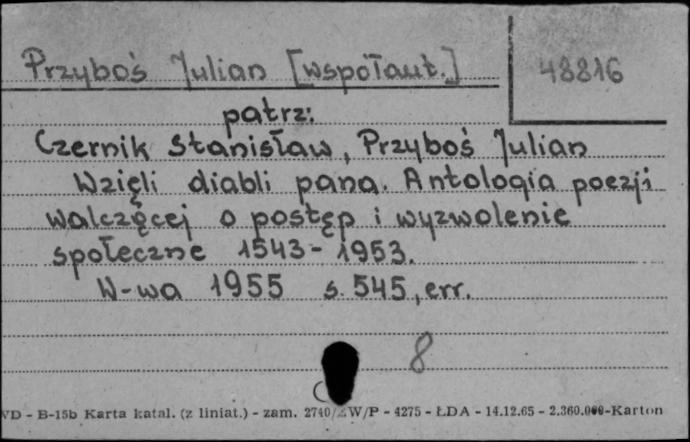 Przyboś Julian [współaut.]
48816
patrz:
Czernik Stanisław, Przyboś Julian
Wzięli diabli pana. Antologia poezji
walczącej o postęp i wyzwolenie
społeczne 1543-1953.
W-wa 1955 s. 545, err.
8
VD - B-15b Karta katal. (z liniat.) - zam. 2740/ZW/P - 4275 - ŁDA - 14.12.65 - 2.360.000-Karton